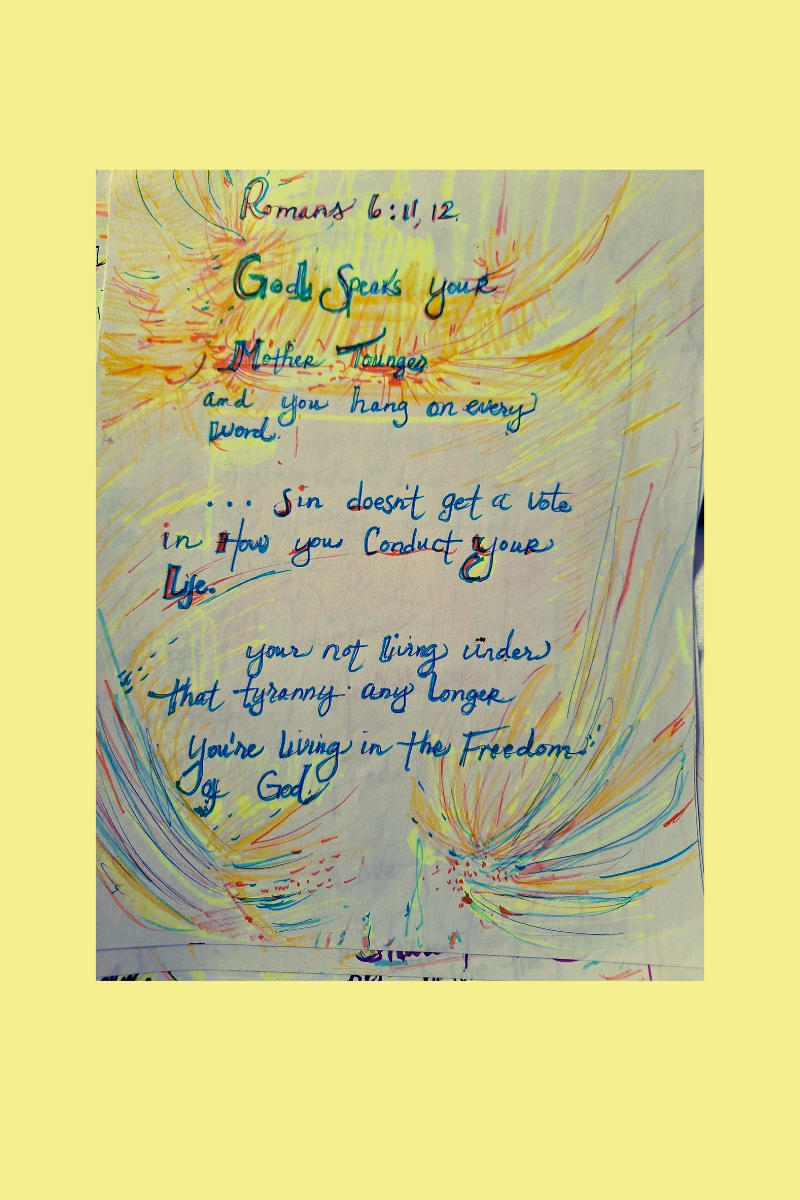 Romans 6:11, 12.
God Speaks your
Mother Tounge
and you hang on every
word.
... Sin doesn't get a vote
in How you Conduct your
Life.
your not living under
that tyranny any longer
You're living in the Freedom
of God.